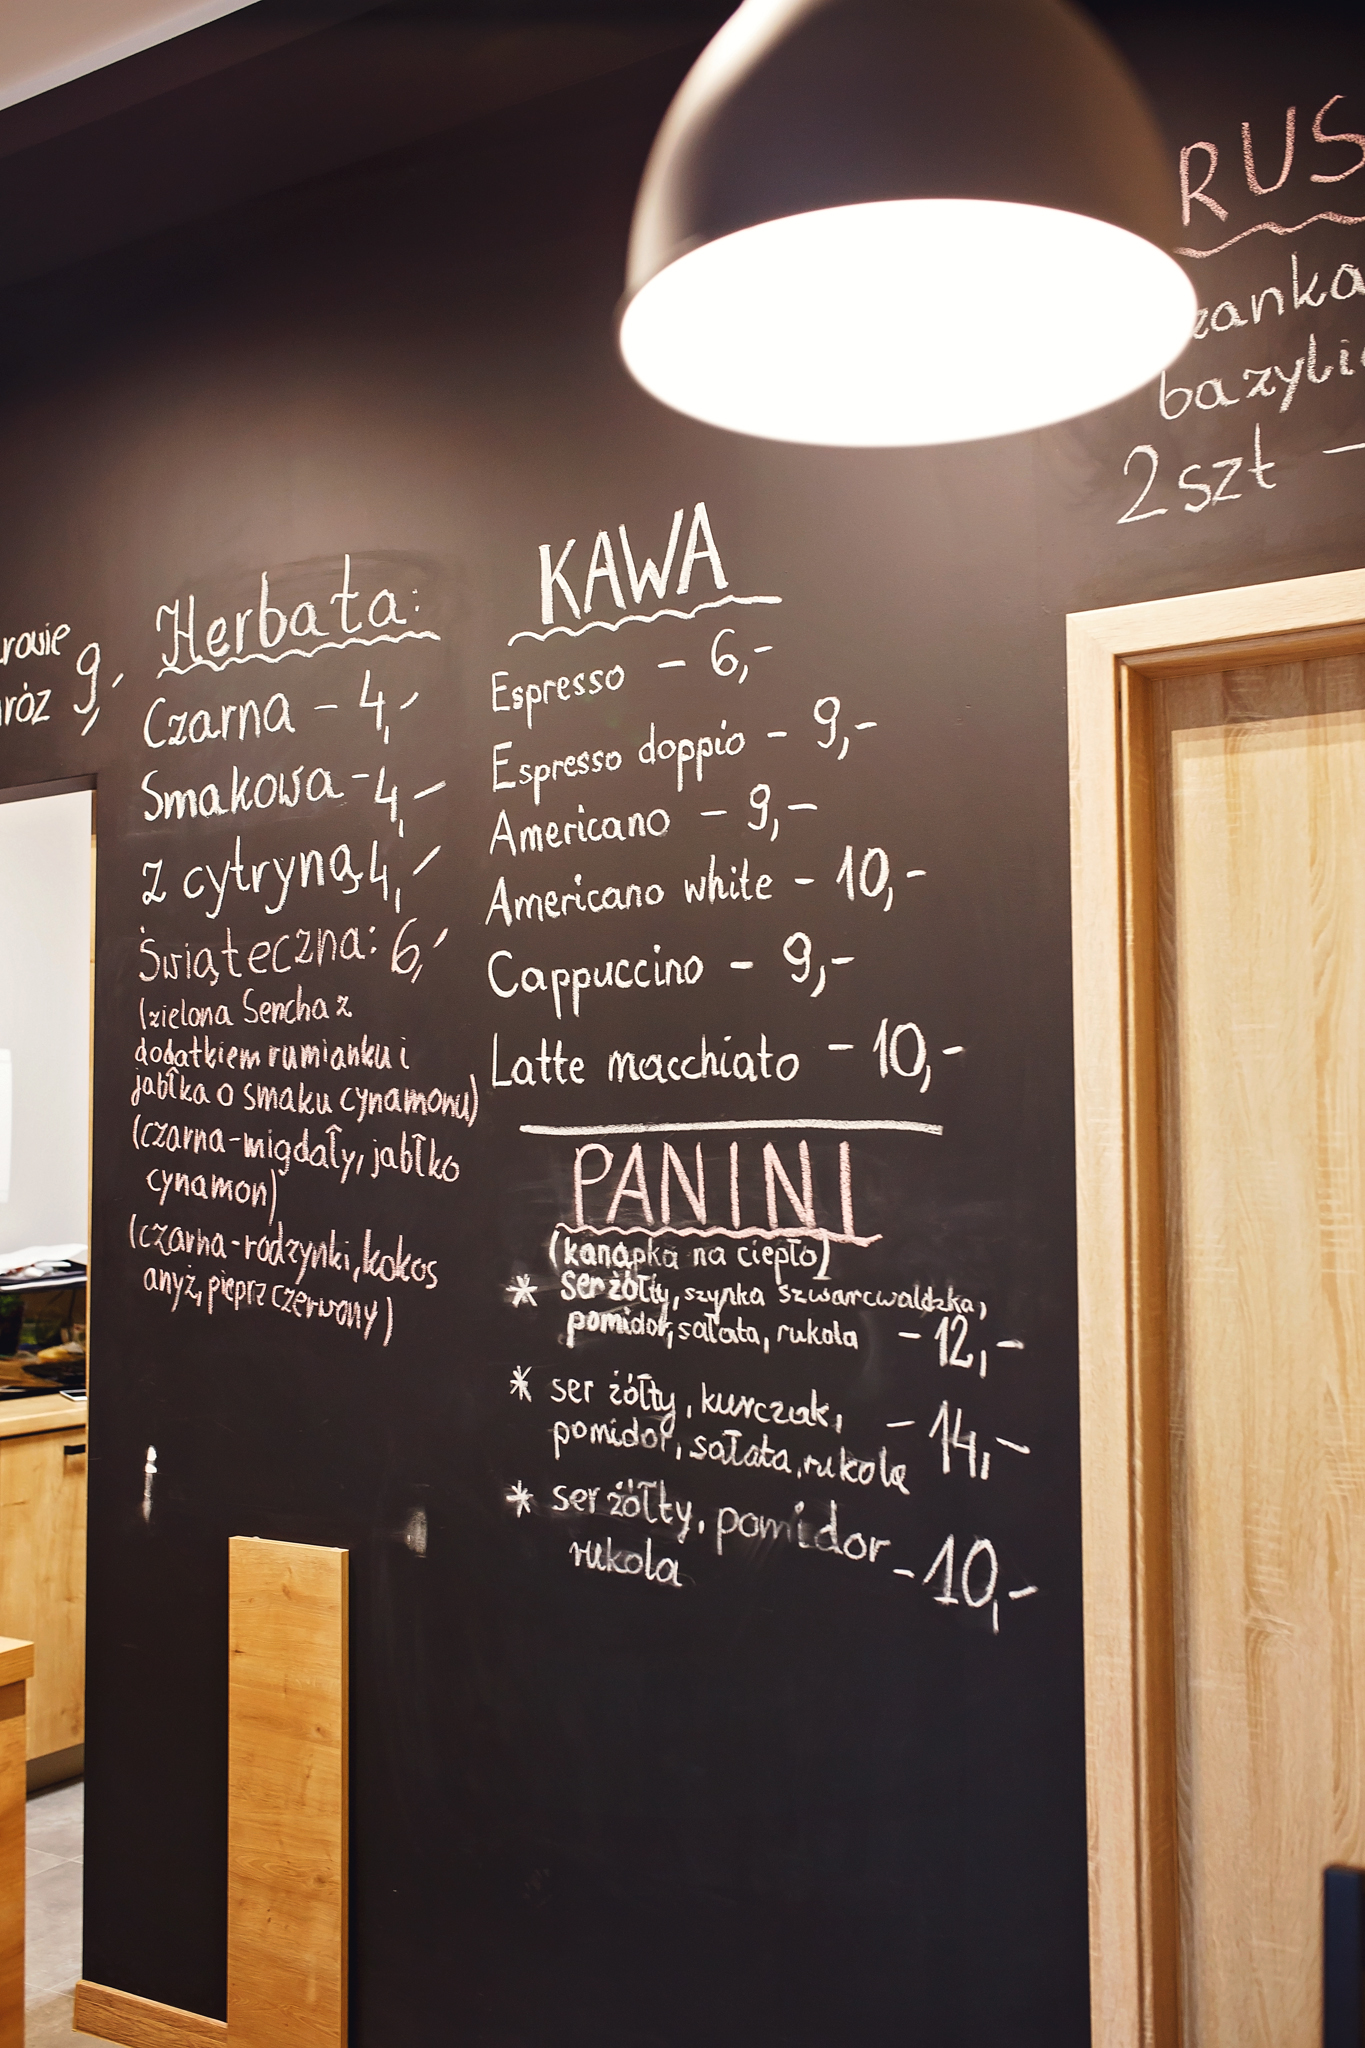 Herbata:
Czarna - 4,-
Smakowa - 4,-
z cytryną 4,-
Świąteczna: 6,-
(zielona Sencha z
dodatkiem rumianku i
jabłka o smaku cynamonu)
(czarna-migdały, jabłko
cynamon)
(czarna-rodzynki, kokos
anyż, pieprz czerwony)
KAWA
Espresso - 6,-
Espresso doppio - 9,-
Americano - 9,-
Americano white - 10,-
Cappuccino - 9,-
Latte macchiato - 10,-
PANINI
(kanapka na ciepło)
* ser żółty, szynka szwarcwaldzka,
pomidor, sałata, rukola - 12,-
* ser żółty, kurczak,
pomidor, sałata, rukola - 14,-
* ser żółty, pomidor
rukola - 10,-
RUS
zanka
bazyli
2 szt -
róz 9,-